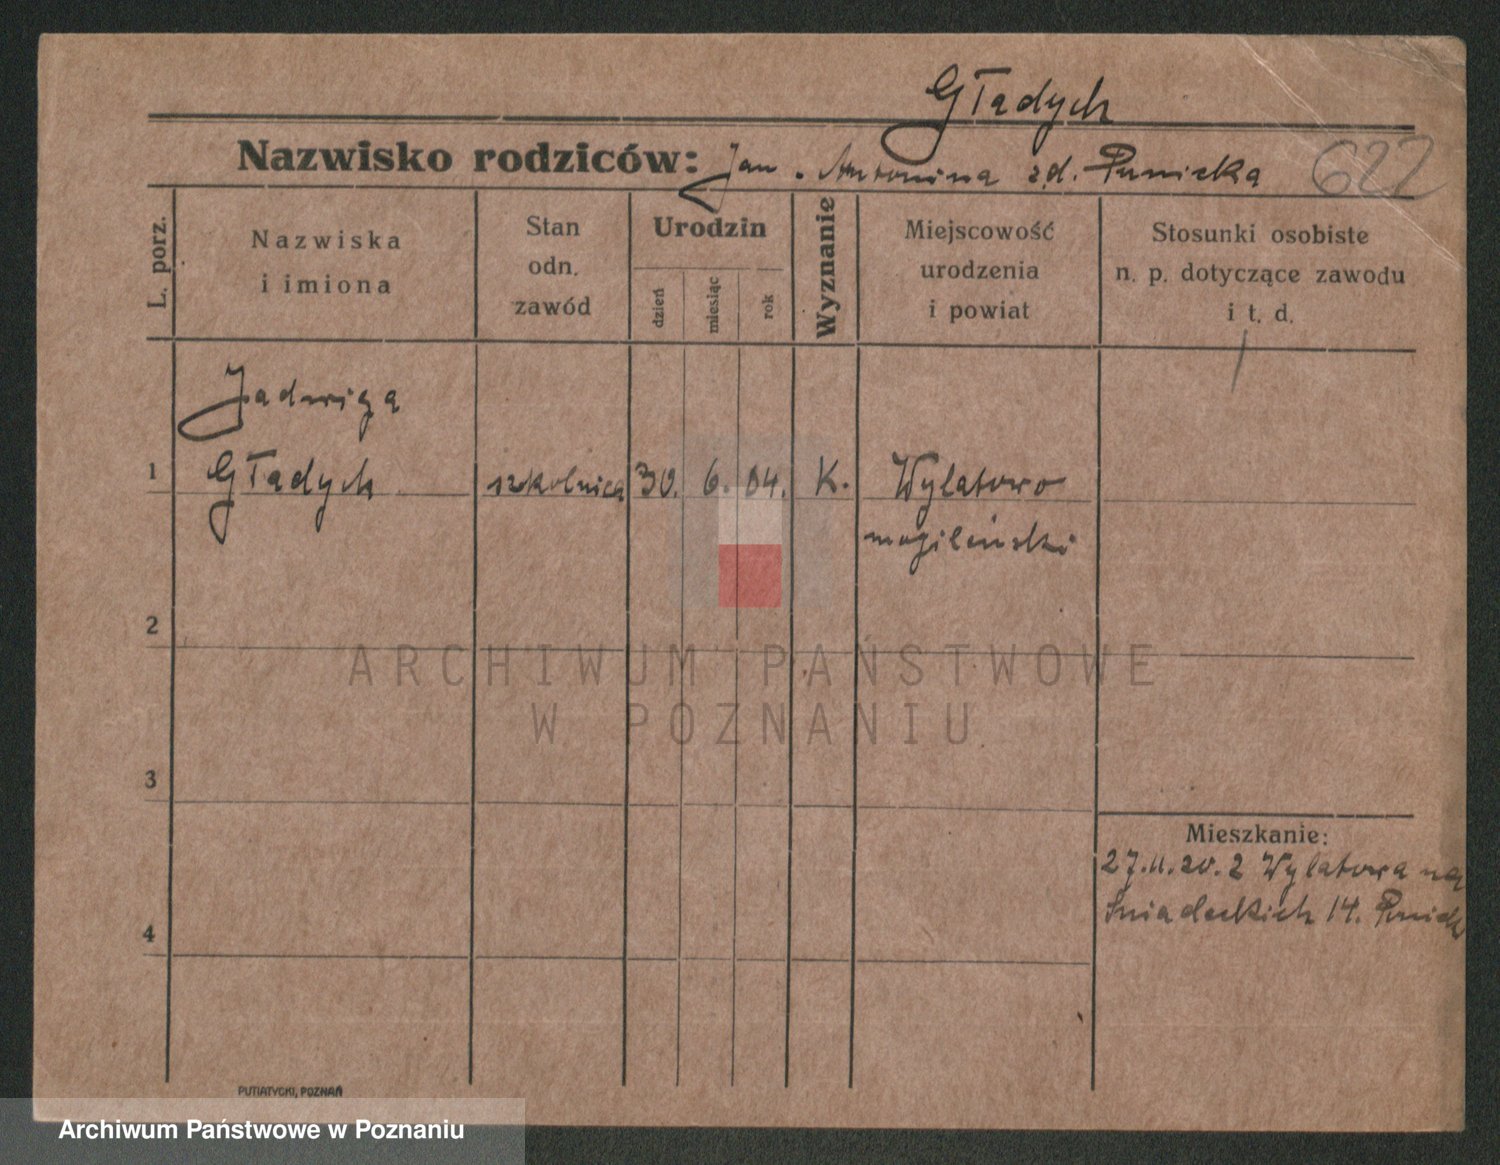 Gładych
622
Nazwisko rodziców: Jan . Antonina z d. Punicka
L. porz.
Nazwiska
i imiona
Stan
odn.
zawód
Urodzin
dzień
miesiąc
rok
Wyznanie
Miejscowość
urodzenia
i powiat
Stosunki osobiste
n. p. dotyczące zawodu
i t. d.
Jadwiga
1 Gładych szkolnica 30. 6. 04. K. Wylatowo
mogileński
2
ARCHIWUM PAŃSTWOWE
W POZNANIU
3
Mieszkanie:
27.11.20. z Wylatowa na
Śniadeckich 14.
4
PUTIATYCKI, POZNAŃ
Archiwum Państwowe w Poznaniu